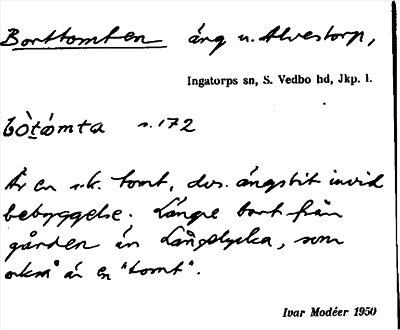 Borttomten äng u. Alvestorp,
Ingatorps sn, S. Vedbo hd, Jkp. l.
bòt́ómta s. 172
Är en s.k. tomt, dvs. ängsbit invid
bebyggelse. Längre bort från
gården än Långlycka, som
också är en "tomt".
Ivar Modéer 1950